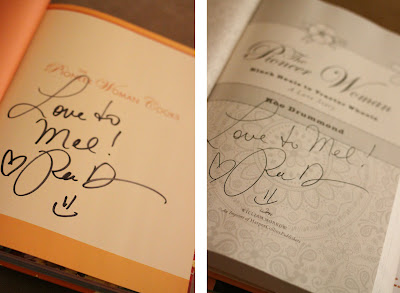 The
Pioneer Woman Cooks
Love to
Mel!
Ree D
The
Pioneer Woman
Black Heels to Tractor Wheels
A Love Story
Ree Drummond
Love to
Mel!
Ree D
WILLIAM MORROW
An Imprint of HarperCollinsPublishers